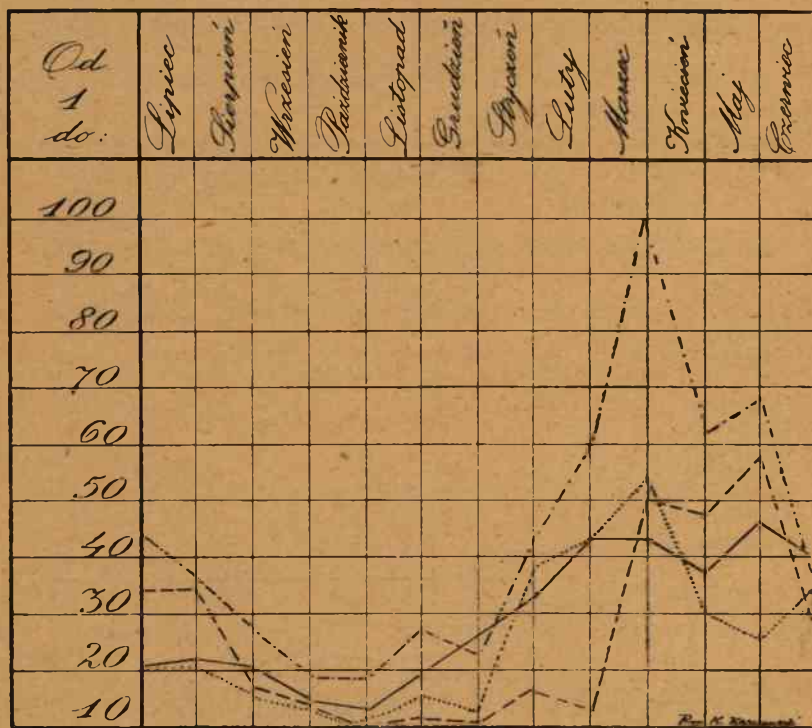 Od
1
do:
Lipiec
Sierpień
Wrzesień
Październik
Listopad
Grudzień
Styczeń
Luty
Marzec
Kwiecień
Maj
Czerwiec
100
90
80
70
60
50
40
30
20
10